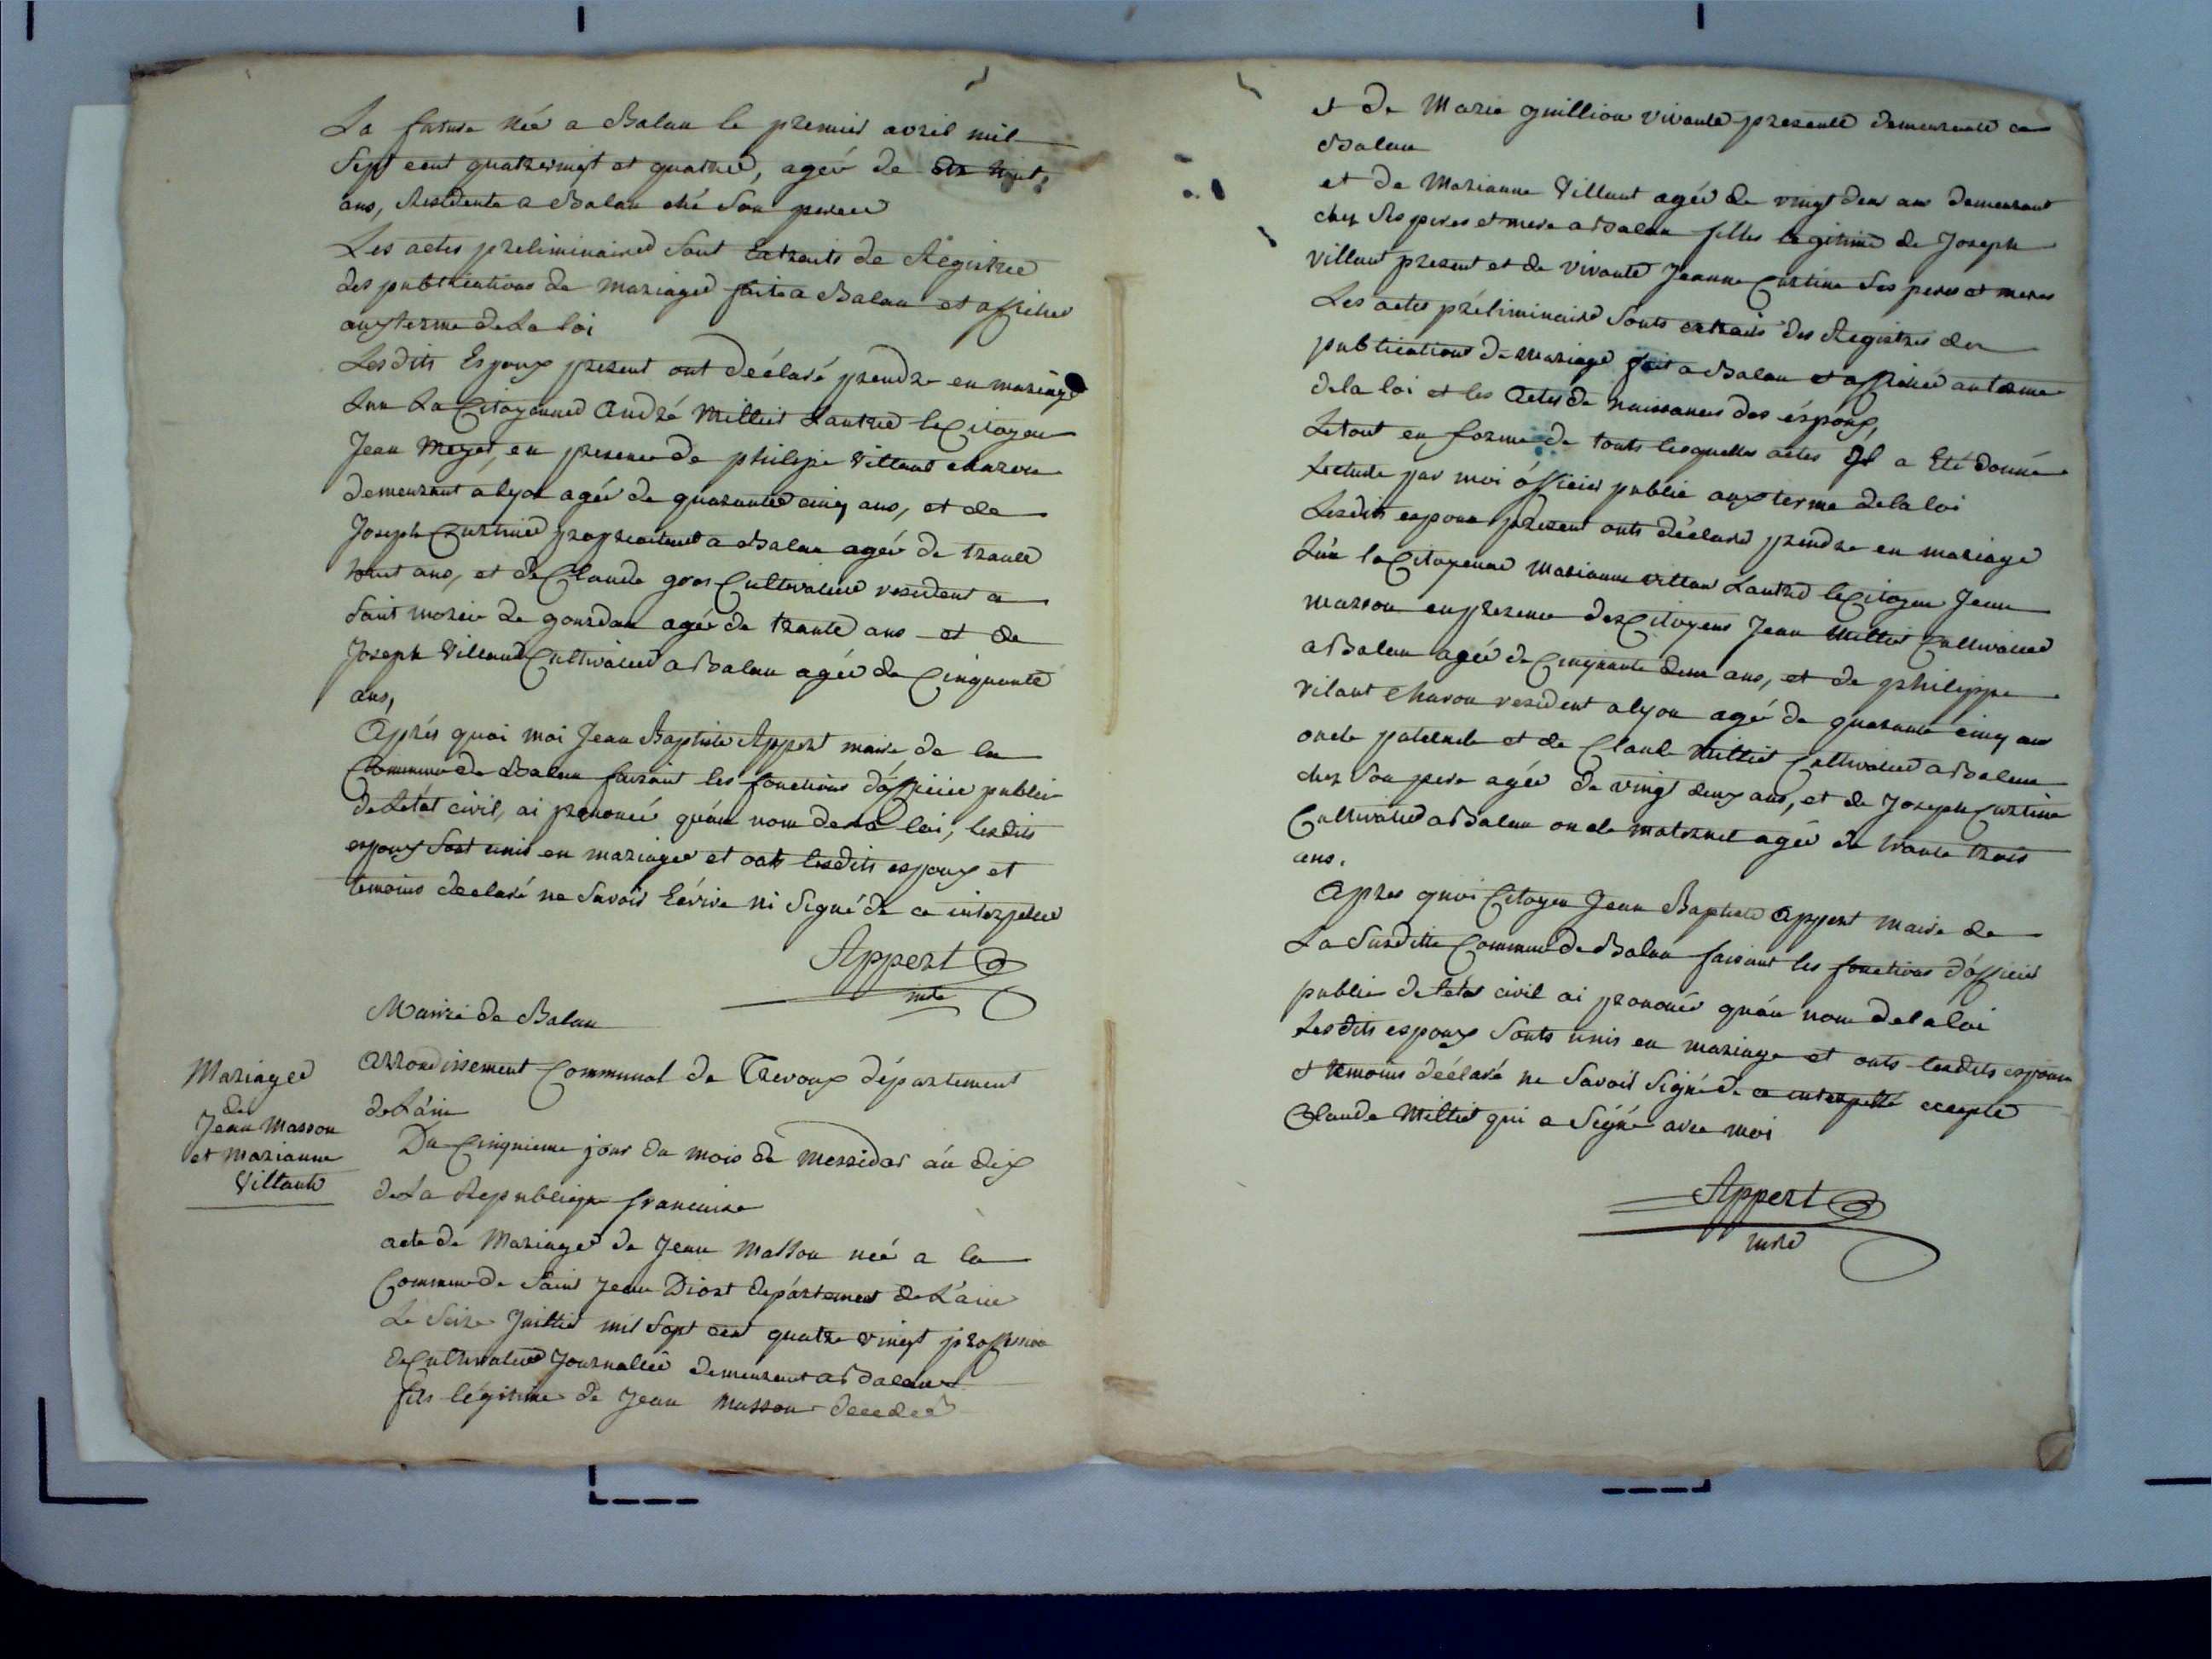 La future née a Balan le premier avril mil
Sept cent quatrevingt et quatre, agée de dix huit
ans, Residente a Balan ché Son perre
Les actes preliminaire Sont Extraits de Registre
des publications de mariage faite a Balan et affiches
aux terme de La loi
Lesdits Espoux present ont déclaré prendre en mariage
Lun La Citoyenne André Milliet Lautre le Citoyen
Jean Meyet, en presence de philipe Villand charon
demeurant a lyon agée de quarante cinq ans, et de
Joseph Curtine proprieaitaire a Balan agée de trante
huit ans, et de Claude gros Cultivateur resident a
Saint morice de gourdan agée de trante ans et de
Joseph Villaud Cultivateur a Balan agée de Cinquante
ans,
Aprés quoi moi Jean Baptiste Appert maire de la
Commune de Balan faisant les fonctions d'officier public
de Létat civil, ai prononcé qu'au nom de La loi, lesdits
espoux sont unis en mariage et onts lesdits espoux et
temoins declaré ne Savoir Ecrire ni Signé de ce interpellé
Appert
mre
Mairie de Balan
Mariage
de
Jean Masson
et Marianne
Villaute
Arrondissement Communal de Trevoux département
de L'áin
Du Cinquieme jour du mois de messidor án dix
de La Republique francaise
acte de Mariage de Jean Masson neé a la
Commune de Saint Jean Diort département de L'ain
Le Seize Juillet mil Sept cent quatre vingt profession
de Cultivateur Journallié demeurant a Balan
fils légitime de Jean Masson decedee
et de Marie guillion vivante presente demeurente a
Balan
et de Marianne Villaut agée de vingt deux ans demeurant
chez Ses peres et mere a Balan filles legitime de Joseph
villaut present et de vivante Jeanne Curtine Ses peres et meres
Les actes préliminaire Sonts extraits des Registres des
publications de mariage fait a Balan et affichée au terme
de la loi et les Actes de naissances des éspoux,
Le tout en forme de touts lesquelles actes Jl a Eté donné
Lecture par moi ófficier public aux terme de la loi
Lesdits espoux present onts déclaré prendre en mariage
Lún la Citoyenne Marianne villau Lautre le Citoyen Jean
masson en presence des Citoyens Jean Milliet Cultivateur
a Balan agée de Cinquante deux ans, et de philippe
vilaut Charon resident a lyon agé de quarante cinq ans
oncle paternele et de Claude Milliet Cultivateur a Balan
chez Son pere agée de vingt deux ans, et de Joseph Curtine
Cultivateur a Balan oncle maternel agée de trante trois
ans.
Apres quoi Citoyen Jean Baptiste Appert Maire de
La Susditte Commune de Balan faisant les fonctions d'officier
public de létat civil ai prononcé qu'áu nom de la loi
Lesdits espoux Sonts unis en mariage et onts lesdits espoux
et temoins déclaré ne Savoir Signé de ce interpellé excepte
Claude Milliet qui a Signé avec moi
Appert
mre